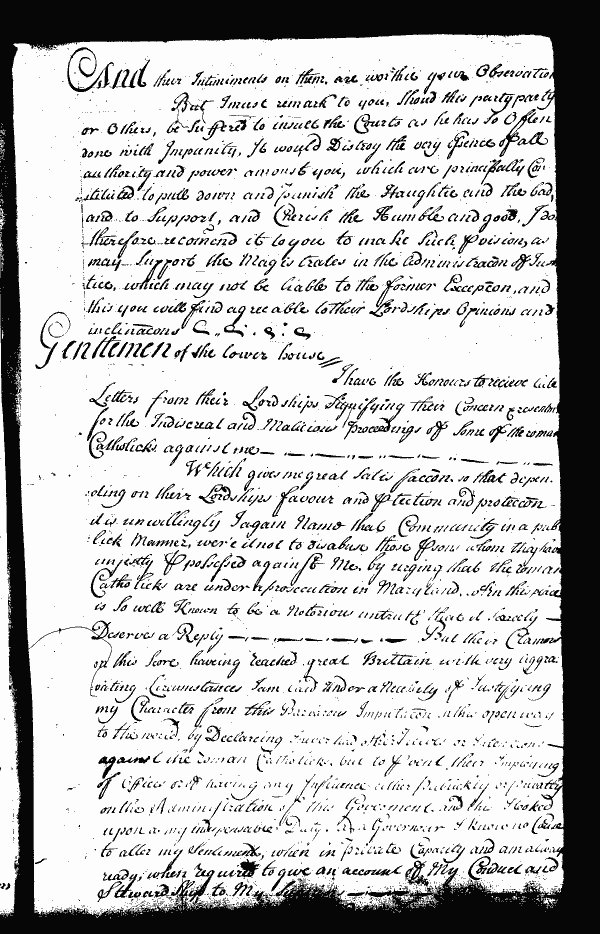 And their Intimiments on them, are worthie your Observation
But I must remark to you, Shoud this party party
or Others, be Suffered to insult the Courts as he has So Often
done with Impunity, It would Distroy the very Esence of all
authority and power amonst you, which are principally Con
stituted to pull down and punish the Haughtie and the bad,
and to Support, and Cherish the Humble and good, I do
therefore recomend it to you to make Such Pvision, as
may Support the Magistrates in the Administracon of Jus
tice, which may not be liable to the former Excepcon, and
this you will find agreeable to their Lordships Opinions and
inclinacons
Gentlemen of the Lower house
I have the Honours to recieve
Letters from their Lordships Signifying their Concern
for the Indiscreat and Malicious Proceedings of Some of the roman
Catholicks against me
Which gives me great Satisfaccon, so that depen-
ding on their Lordships favour and Ptection and proteccon
it is unwillingly I again Name that Community in a pub
lick Manner, were it not to disabuse those Psons whom they have
unjustly Ppossessed against Me, by urging that the roman
Catholicks are under a prosecution in Maryland, which in this place
is So well Known to be a Notorious untruth that it Scarcely
Deserves a Reply But their Clamors
on this Score haveing reached great Brittain with very aggra
vating Circumstances I am laid under a Necessity of Justifyeing
my Character from this Barbarous Imputacon in this open way
to the world, by Declareing I never had other Views or Intencons
against the roman Catholicks, but to Pvent their Imploying
of Offices or of having any Influence either Publickly or privately
on the Administration of this Government, and this I looked
upon as my indispensable Duty, As a Governour I know no Cause
to alter my Sentiments, when in private Capacity and am alway
ready, when required to give an account of My Conduct and
Stewardship to My